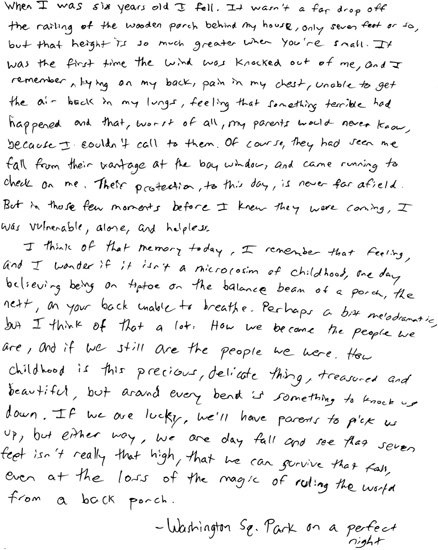 When I was six years old I fell. It wasn't a far drop off
the railing of the wooden porch behind my house, only seven feet or so,
but that height is so much greater when you're small. It
was the first time the wind was knocked out of me, and I
remember, lying on my back, pain in my chest, unable to get
the air back in my lungs, feeling that something terrible had
happened and that, worst of all, my parents would never know,
because I couldn't call to them. Of course, they had seen me
fall from their vantage at the bay window, and came running to
check on me. Their protection, to this day, is never far afield.
But in those few moments before I knew they were coming, I
was vulnerable, alone, and helpless.
I think of that memory today, I remember that feeling,
and I wonder if it isn't a microcosim of childhood, one day
believing being on tiptoe on the balance beam of a porch, the
next, on your back unable to breathe. Perhaps a bit melodramatic,
but I think of that a lot. How we become the people we
are, and if we still are the people we were. How
childhood is this precious, delicate thing, treasured and
beautiful, but around every bend is something to knock us
down. If we are lucky, we'll have parents to pick us
up, but either way, we one day fall and see that seven
feet isn't really that high, that we can survive that fall,
even at the loss of the magic of ruling the world
from a back porch.
-Washington Sq. Park on a perfect
night